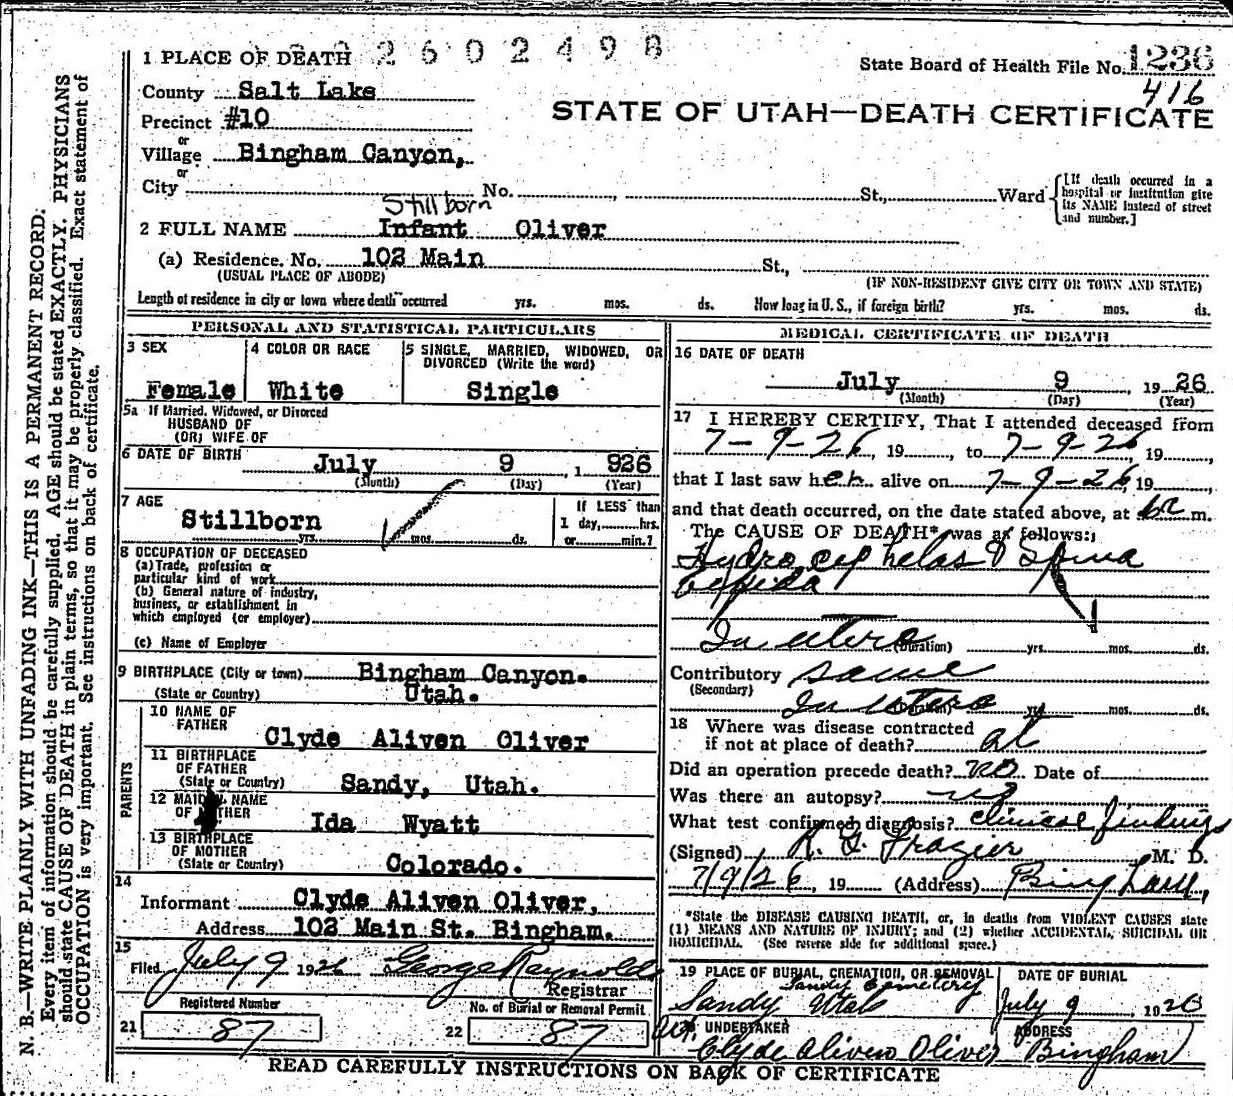 N. B.—WRITE PLAINLY WITH UNFADING INK—THIS IS A PERMANENT RECORD.
Every item of information should be carefully supplied. AGE should be stated EXACTLY. PHYSICIANS
should state CAUSE OF DEATH in plain terms, so that it may be properly classified. Exact statement of
OCCUPATION is very important. See instructions on back of certificate.
2602498
1 PLACE OF DEATH
State Board of Health File No. 1236
416
County Salt Lake
STATE OF UTAH—DEATH CERTIFICATE
Precinct #10
or
Village Bingham Canyon,
or
City No. , St., Ward
[If death occurred in a
hospital or institution give
its NAME instead of street
and number.]
Stillborn
2 FULL NAME Infant Oliver
(a) Residence. No. 102 Main St.,
(USUAL PLACE OF ABODE) (IF NON-RESIDENT GIVE CITY OR TOWN AND STATE)
Length of residence in city or town where death occurred yrs. mos. ds. How long in U. S., if foreign birth? yrs. mos. ds.
PERSONAL AND STATISTICAL PARTICULARS
3 SEX
Female
4 COLOR OR RACE
White
5 SINGLE, MARRIED, WIDOWED, OR
DIVORCED (Write the word)
Single
5a If Married, Widowed, or Divorced
HUSBAND OF
(OR) WIFE OF
6 DATE OF BIRTH July 9 , 1 926
(Month) (Day) (Year)
7 AGE
Stillborn
yrs. mos. ds.
If LESS than
1 day, hrs.
or min.?
8 OCCUPATION OF DECEASED
(a) Trade, profession or
particular kind of work
(b) General nature of industry,
business, or establishment in
which employed (or employer)
(c) Name of Employer
9 BIRTHPLACE (City or town) Bingham Canyon.
(State or Country) Utah.
PARENTS
10 NAME OF
FATHER
Clyde Aliven Oliver
11 BIRTHPLACE
OF FATHER
(State or Country) Sandy, Utah.
12 MAIDEN NAME
OF MOTHER
Ida Wyatt
13 BIRTHPLACE
OF MOTHER
(State or Country) Colorado.
14
Informant Clyde Aliven Oliver,
Address 102 Main St. Bingham.
15
Filed July 9 1926 George Raynolds
Registrar
Registered Number
21 87
No. of Burial or Removal Permit
22 87
MEDICAL CERTIFICATE OF DEATH
16 DATE OF DEATH
July 9 , 19 26
(Month) (Day) (Year)
17 I HEREBY CERTIFY, That I attended deceased from
7-9-26, 19 , to 7-9-26, 19 ,
that I last saw her alive on 7-9-26, 19 ,
and that death occurred, on the date stated above, at m.
The CAUSE OF DEATH* was as follows:
Hydrocephelas & Spina
Beffida
In utero (Duration) yrs. mos. ds.
Contributory same
(Secondary)
In utero (Duration) yrs. mos. ds.
18 Where was disease contracted
if not at place of death? at
Did an operation precede death? no Date of
Was there an autopsy? no
What test confirmed diagnosis? clinical findings
(Signed) R. G. Frazier M. D.
7/9/26, 19 (Address) Bingham,
*State the DISEASE CAUSING DEATH, or, in deaths from VIOLENT CAUSES state
(1) MEANS AND NATURE OF INJURY; and (2) whether ACCIDENTAL, SUICIDAL OR
HOMICIDAL. (See reverse side for additional space.)
19 PLACE OF BURIAL, CREMATION, OR REMOVAL
Sandy Cemetery
Sandy Utah
DATE OF BURIAL
July 9 , 1926
UNDERTAKER
Clyde Aliven Oliver
ADDRESS
Bingham
READ CAREFULLY INSTRUCTIONS ON BACK OF CERTIFICATE